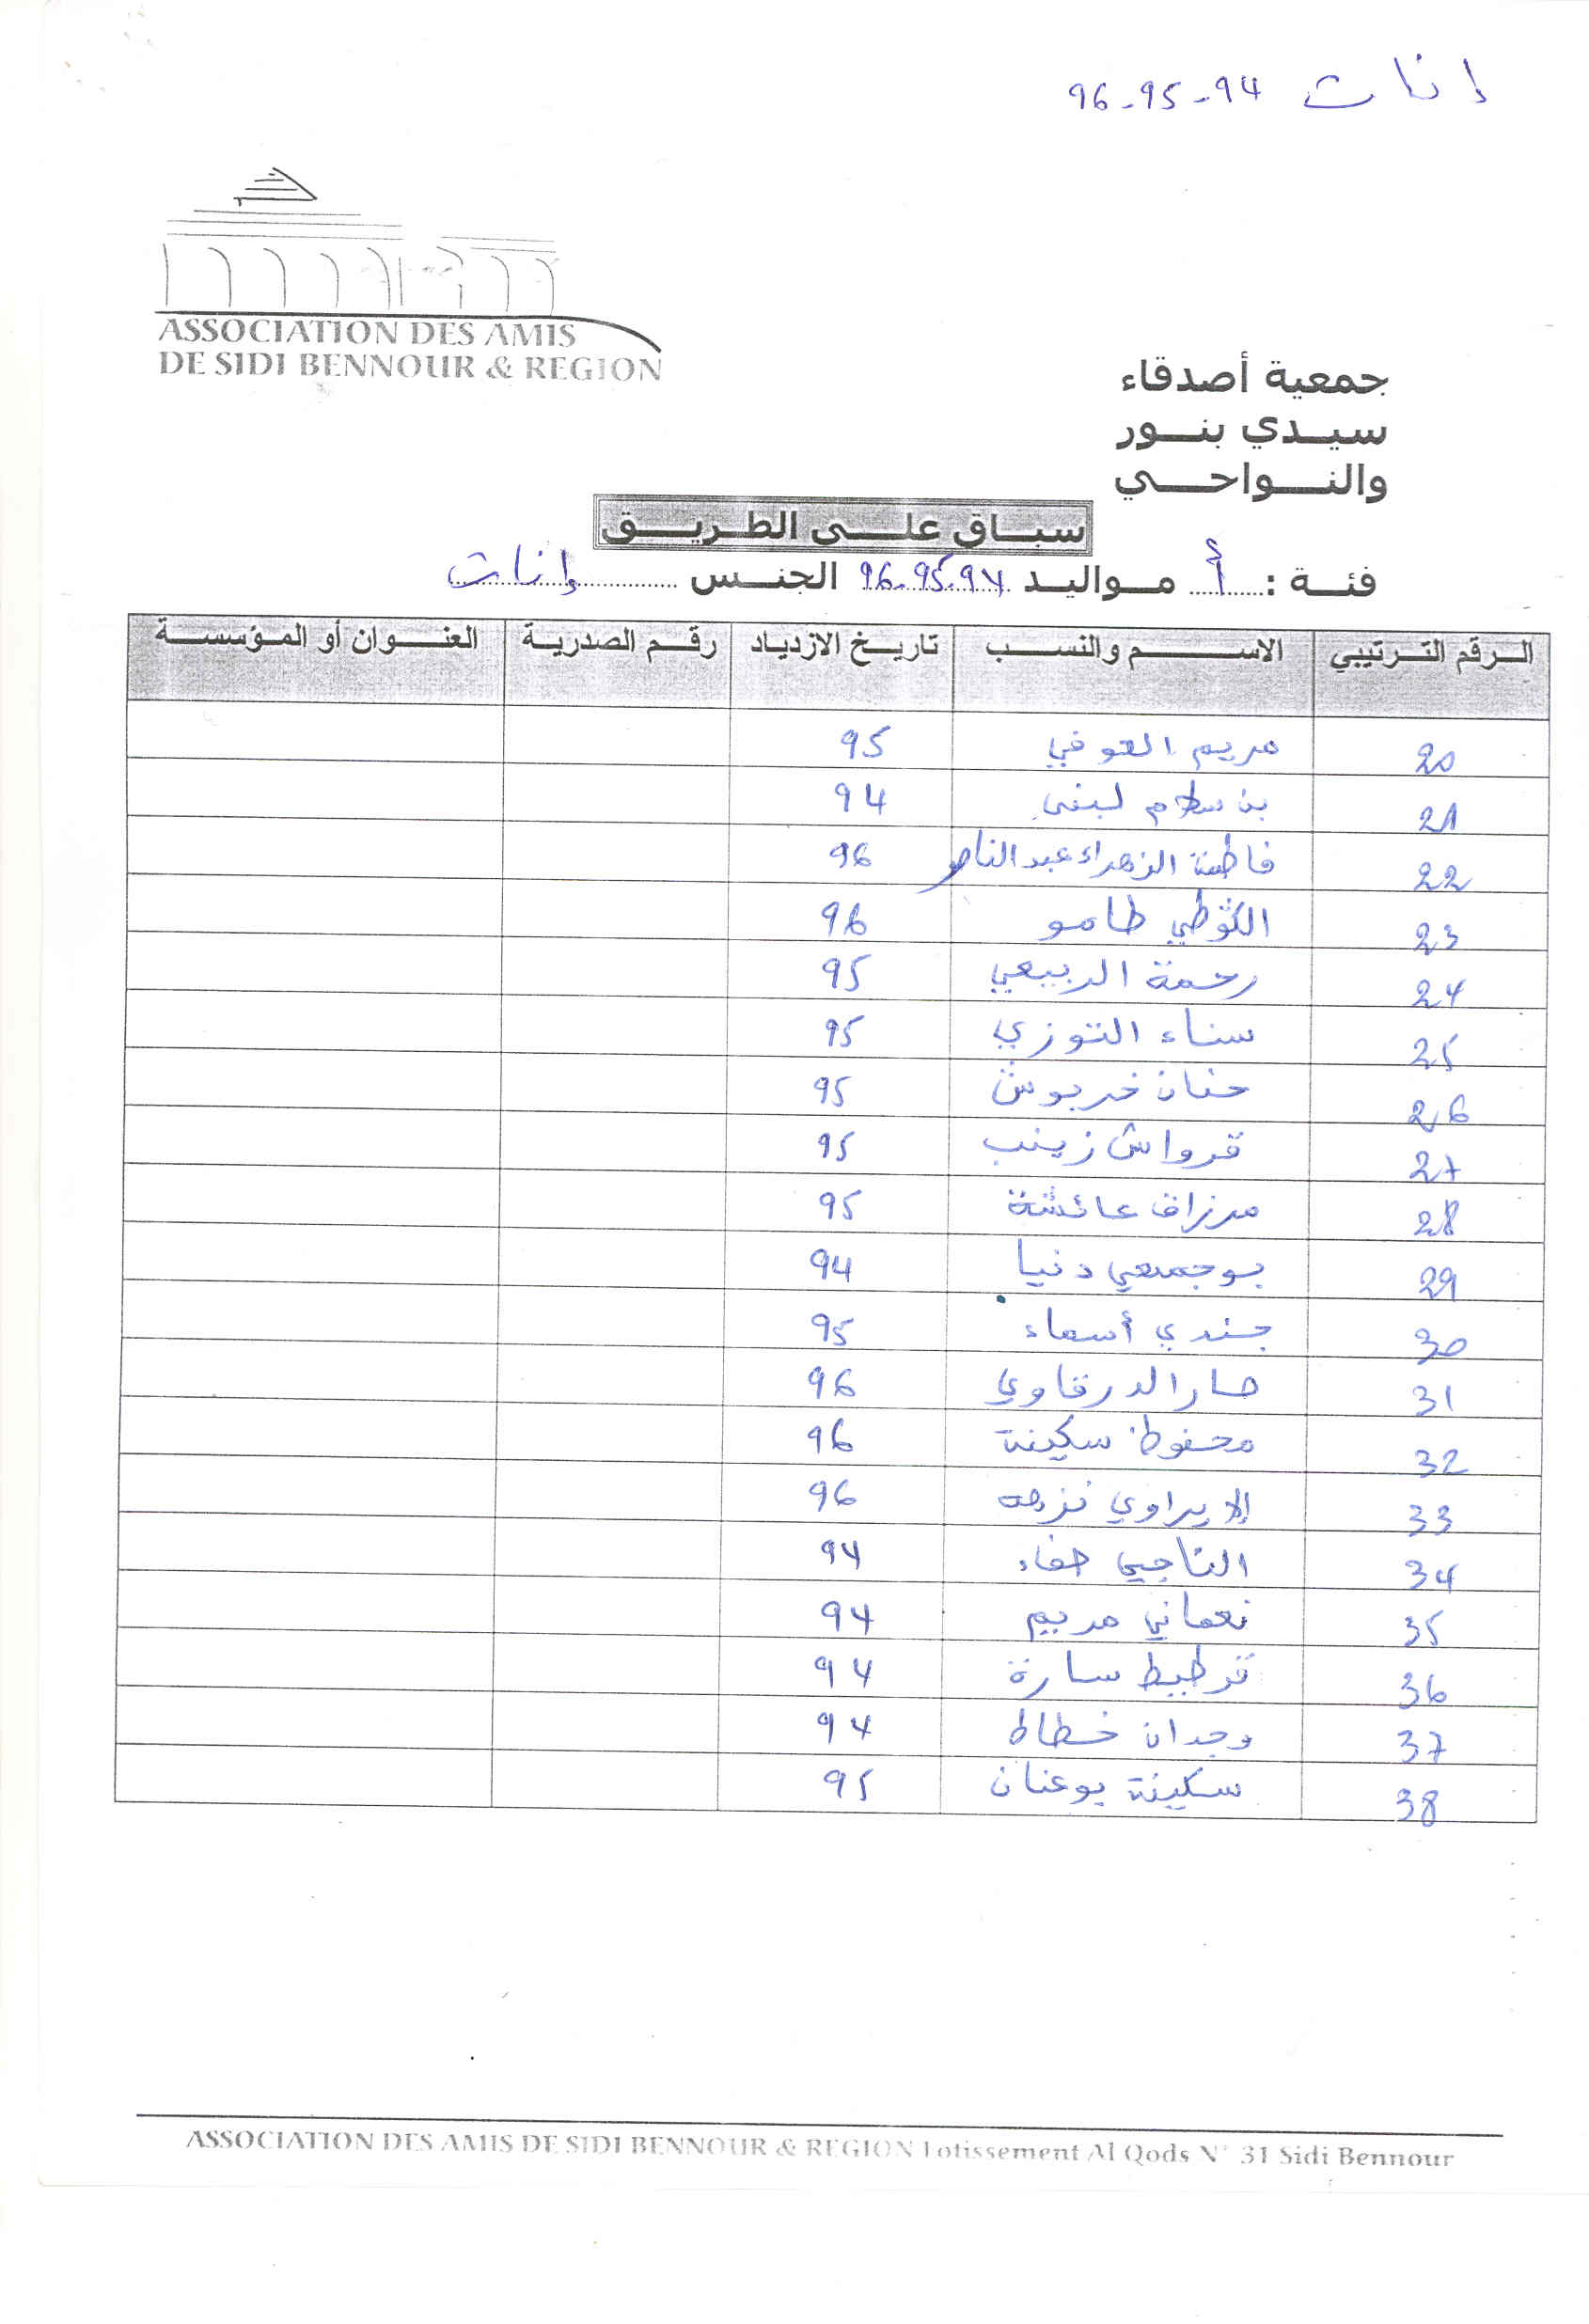 إناث 94-95-96
ASSOCIATION DES AMIS
DE SIDI BENNOUR & REGION
جمعية أصدقاء
سيدي بنور
والنواحي
سباق على الطريق
فئة : أ مواليد 94.95.96 الجنس إناث
الرقم الترتيبي الاسم والنسب تاريخ الازدياد رقم الصدرية العنوان أو المؤسسة
20 مريم العوفي 95
21 بن سلام لبنى 94
22 فاطمة الزهراء عبد الناصر 96
23 طامو 96
24 رحمة الربيعي 95
25 سناء التوزي 95
26 حنان خربوش 95
27 قرواش زينب 95
28 مرزاق عائشة 95
29 بوجمعي دنيا 94
30 جندي أسماء 95
31 الدرقاوي 96
32 محفوظ سكينة 96
33 نزهة 96
34 الناجي صفاء 94
35 نعماني مريم 94
36 قرطيط سارة 94
37 وجدان خطاط 94
38 سكينة بوعنان 95
ASSOCIATION DES AMIS DE SIDI BENNOUR & REGION Lotissement Al Qods N° 31 Sidi Bennour